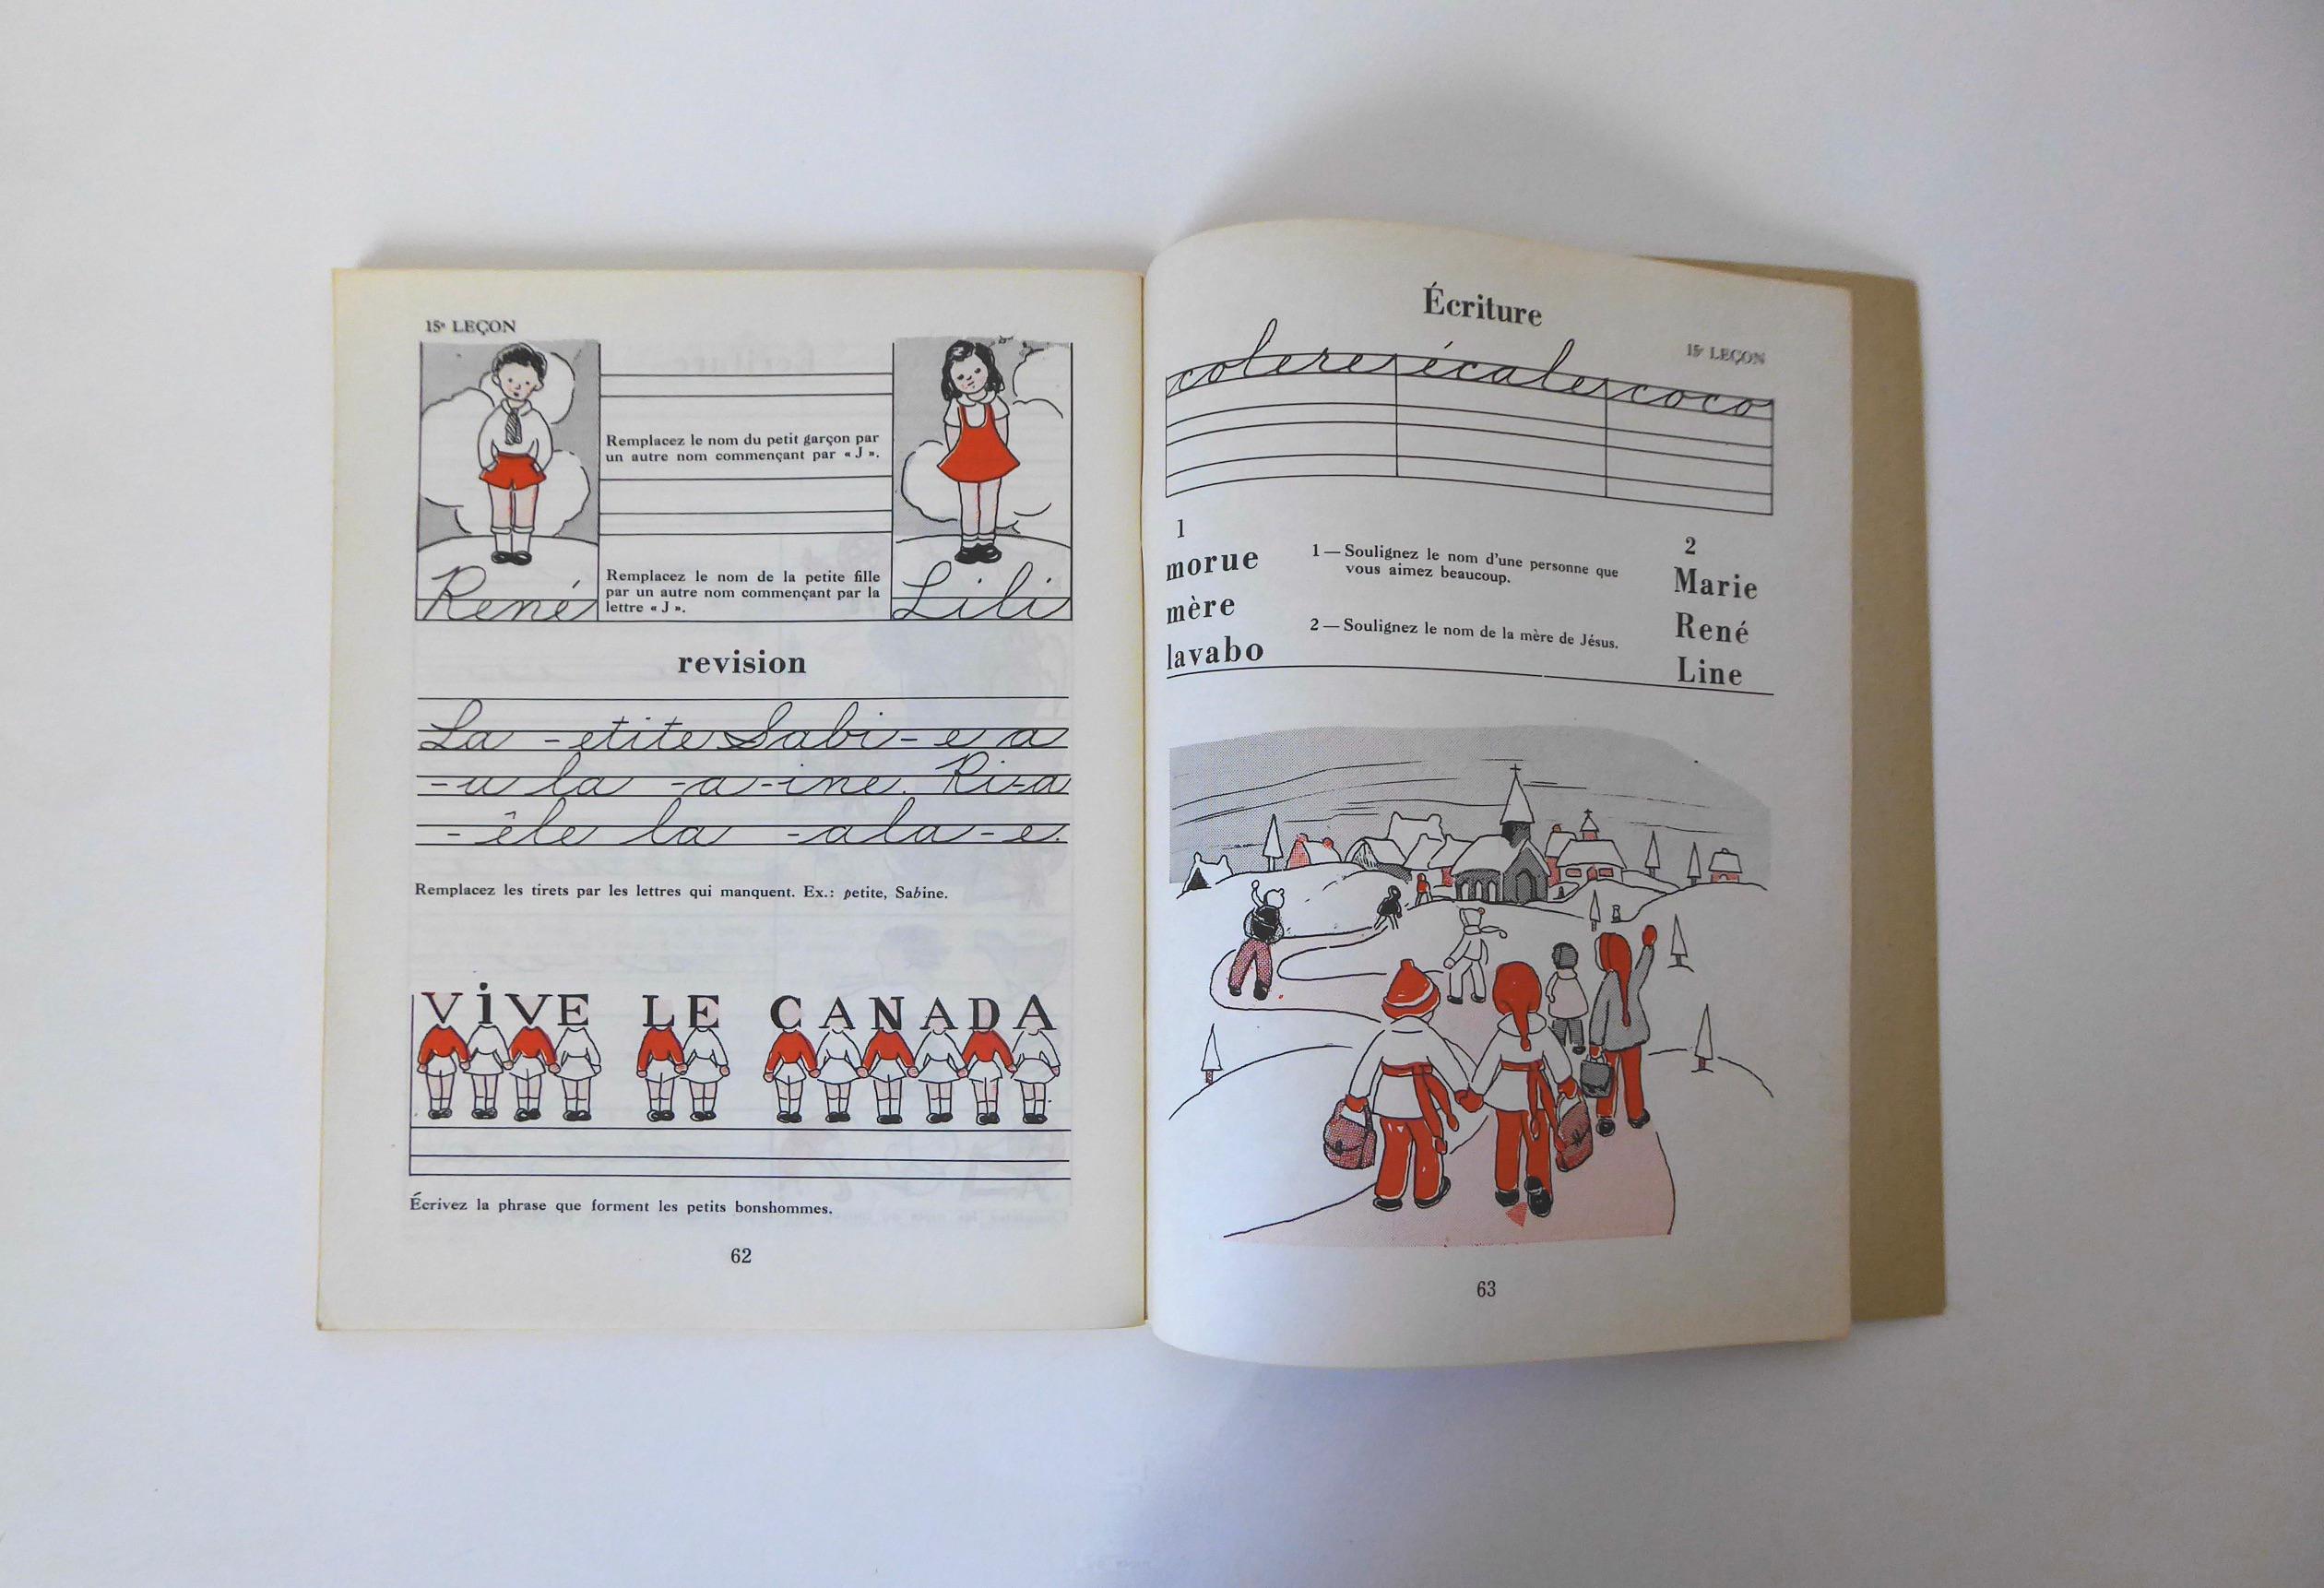 15e LEÇON
Remplacez le nom du petit garçon par
un autre nom commençant par « J ».
Remplacez le nom de la petite fille
par un autre nom commençant par la
lettre « J ».
René
Lili
revision
La -etite Sabi-e a
-u la -a-ine. Ri-a
-êle la -ala-e.
Remplacez les tirets par les lettres qui manquent. Ex.: petite, Sabine.
ViVE LE CANADA
Écrivez la phrase que forment les petits bonshommes.
62
Écriture
15e LEÇON
colere écale coco
1
morue
mère
lavabo
1 — Soulignez le nom d'une personne que
vous aimez beaucoup.
2 — Soulignez le nom de la mère de Jésus.
2
Marie
René
Line
63